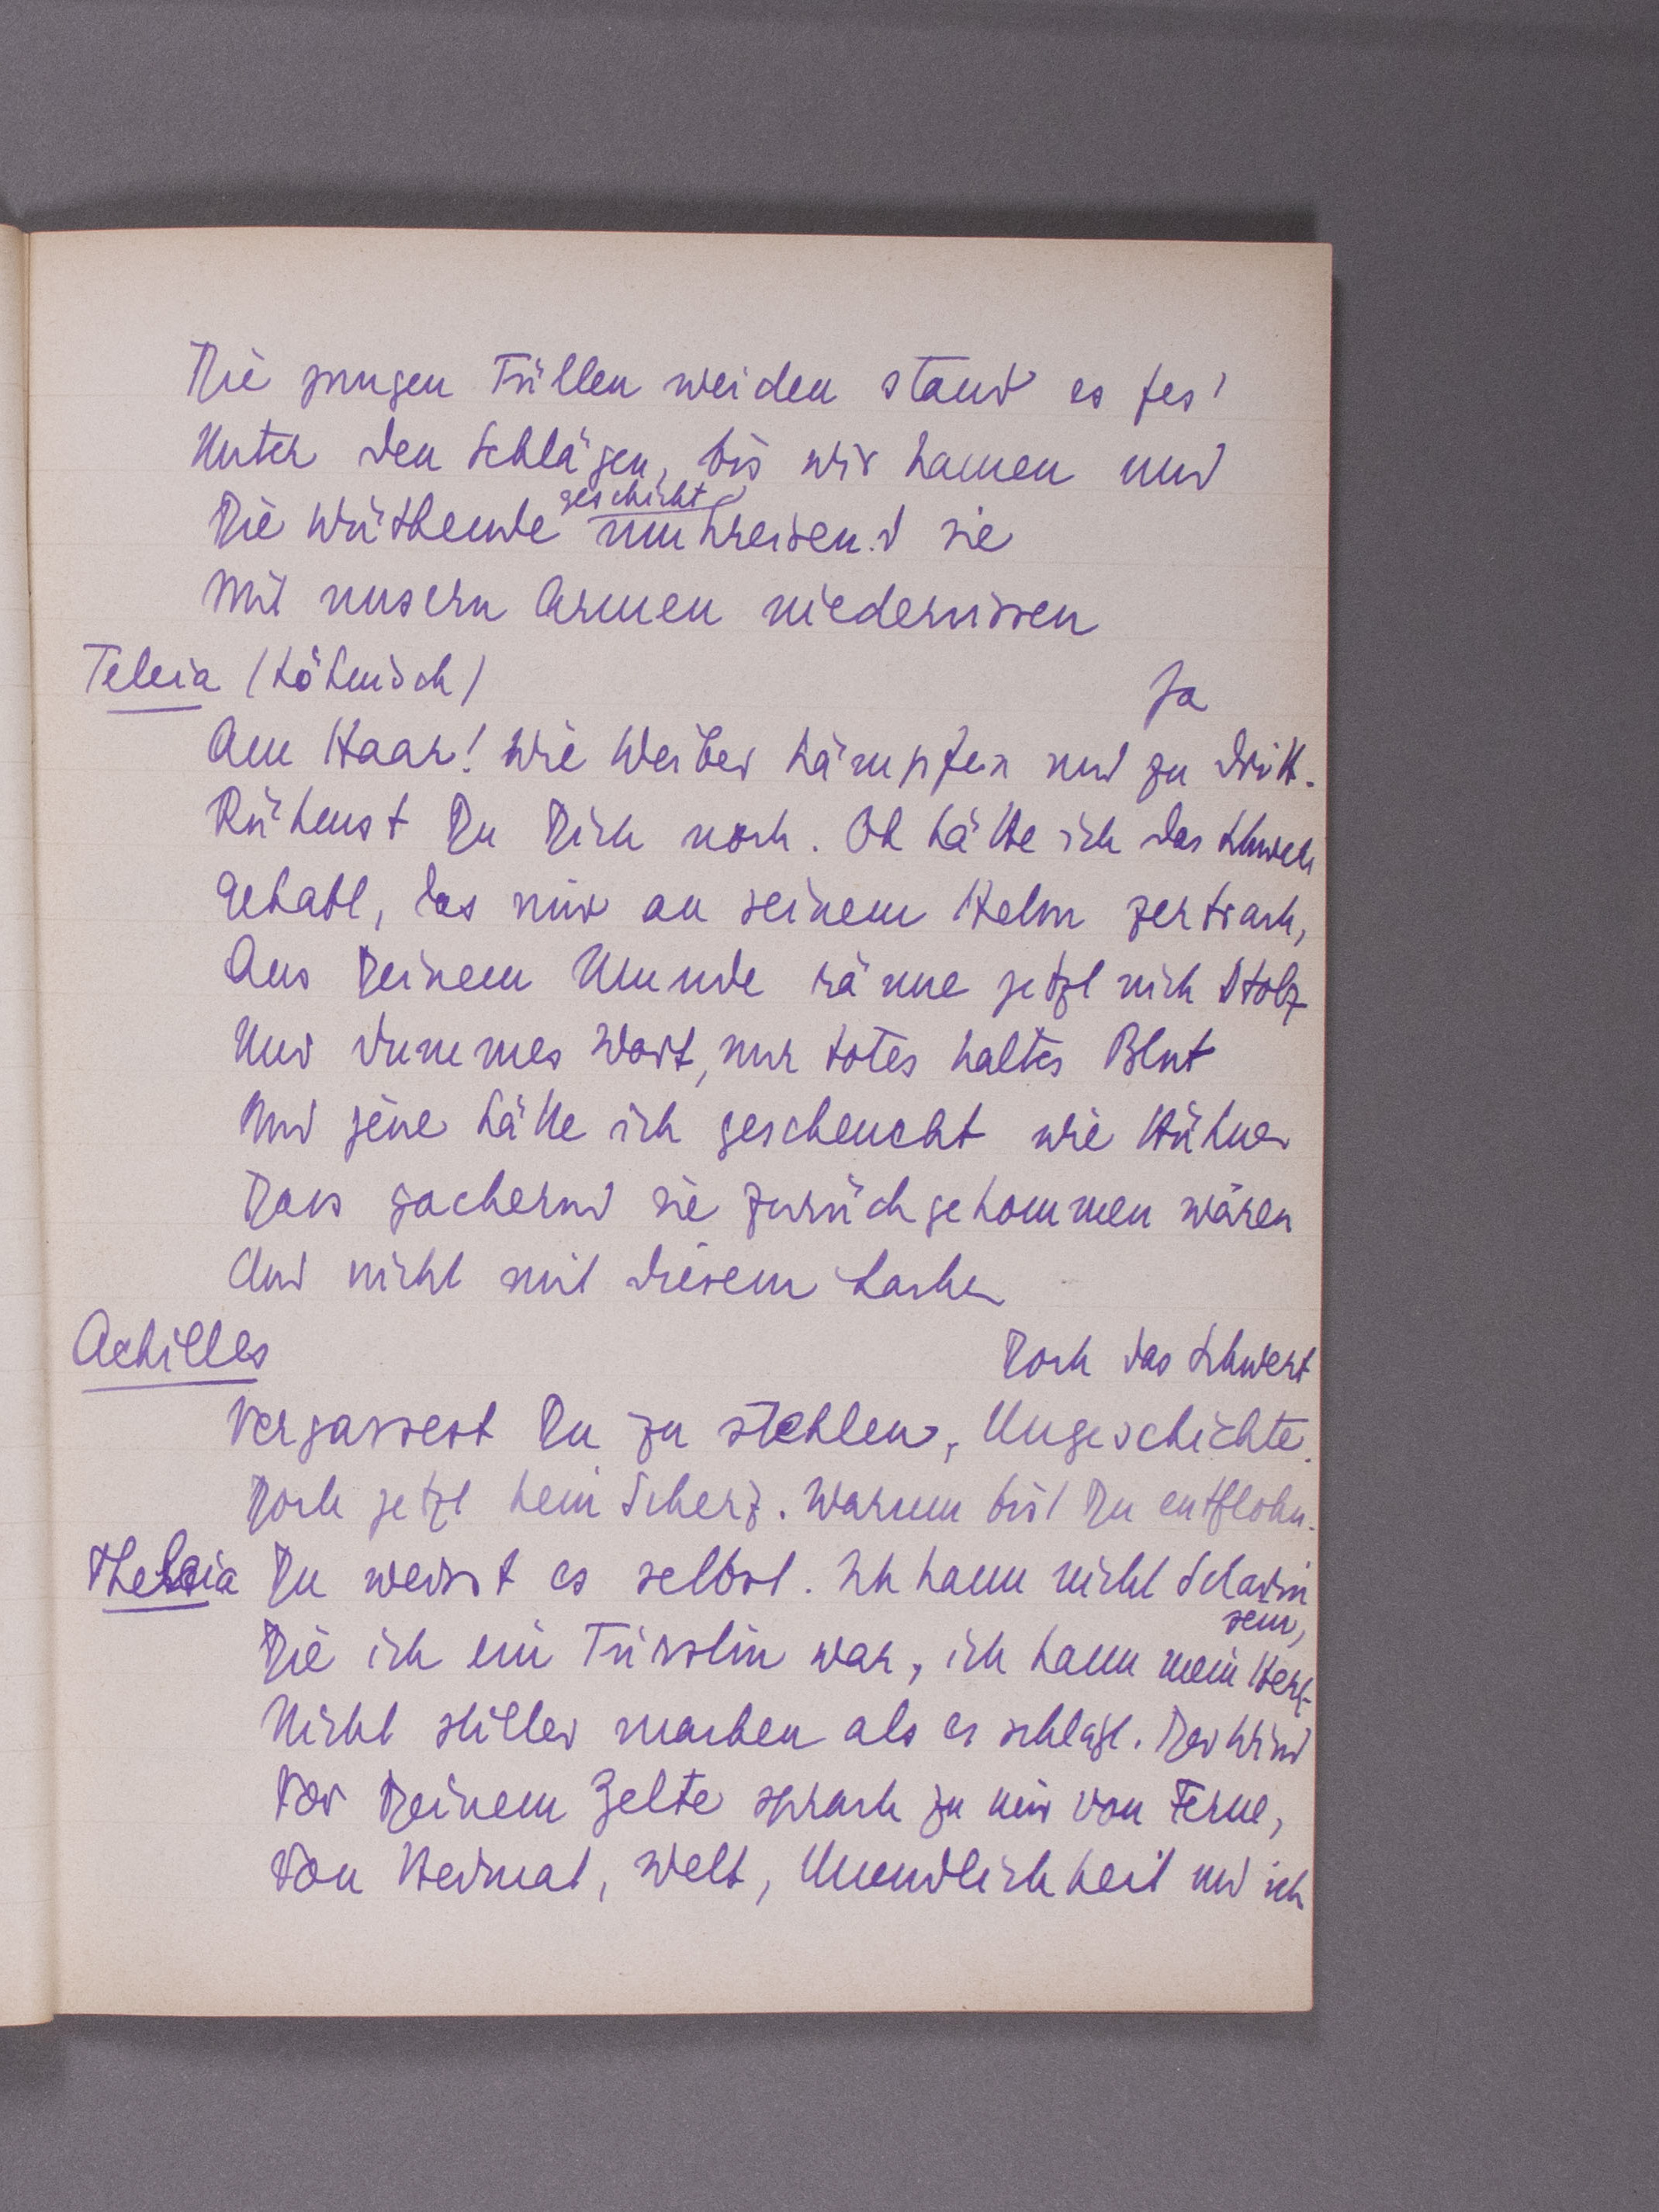 Die jungen Füllen weiden stand es fest
Unter den Schlägen, bis wir kamen und
geschickt
Die Wüthende umkreisend sie
Mit unsern Armen niederrissen
Teleia (höhnisch)
Ja
Am Haar! Wie Weiber kämpfen und zu dritt.
Rühmst Du Dich noch. Oh hätte ich das Schwert
Gehabt, das mir an seinem Helm zerbrach,
Aus Deinem Munde ränne jetzt nich Stolz
Und dummes Wort, nur totes kaltes Blut
Und jene hätte ich gescheucht wie Hühner
Dass gackernd sie zurückgekommen wären
Und nicht mit diesem Lachen
Achilles
Doch das Schwert
Vergassest Du zu stehlen, Ungeschickte.
Doch jetzt kein Scherz. Warum bist Du entflohn.
Theleia Du weisst es selbst. Ich kann nicht Sclavin
sein,
Die ich ein Fürstin war, ich kann mein Herz
Nicht stiller machen als es schlägt. Der Wind
Vor Deinem Zelte sprach zu mir von Ferne,
Von Heimat, Welt, Unendlichkeit und ich